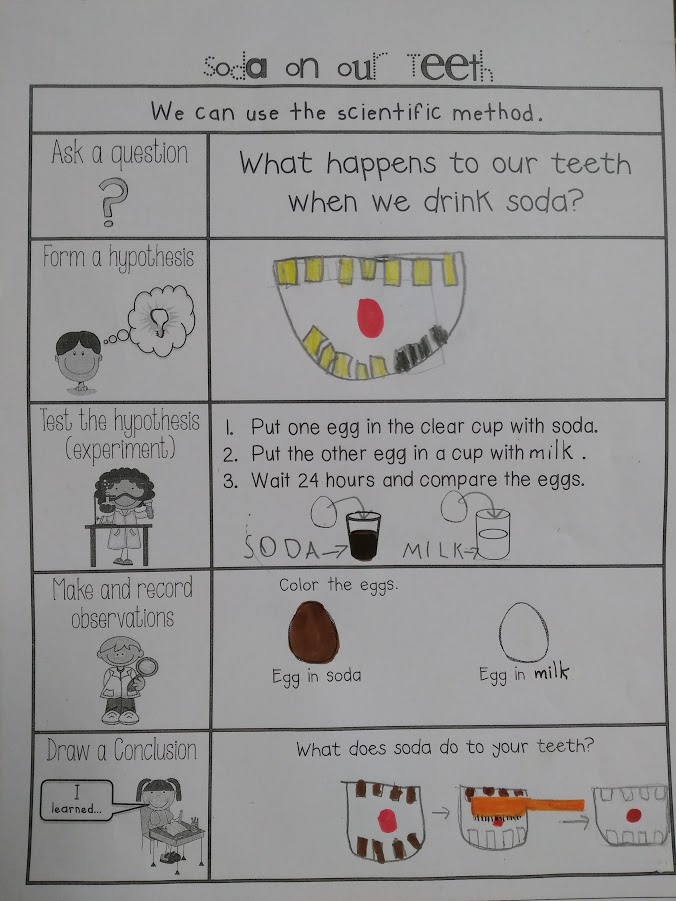 Soda on our Teeth
We can use the scientific method.
Ask a question
?
What happens to our teeth
when we drink soda?
Form a hypothesis
Test the hypothesis
(experiment)
1. Put one egg in the clear cup with soda.
2. Put the other egg in a cup with milk.
3. Wait 24 hours and compare the eggs.
SODA→
MILK→
Make and record
observations
Color the eggs.
Egg in soda
Egg in milk
Draw a Conclusion
I
learned...
What does soda do to your teeth?